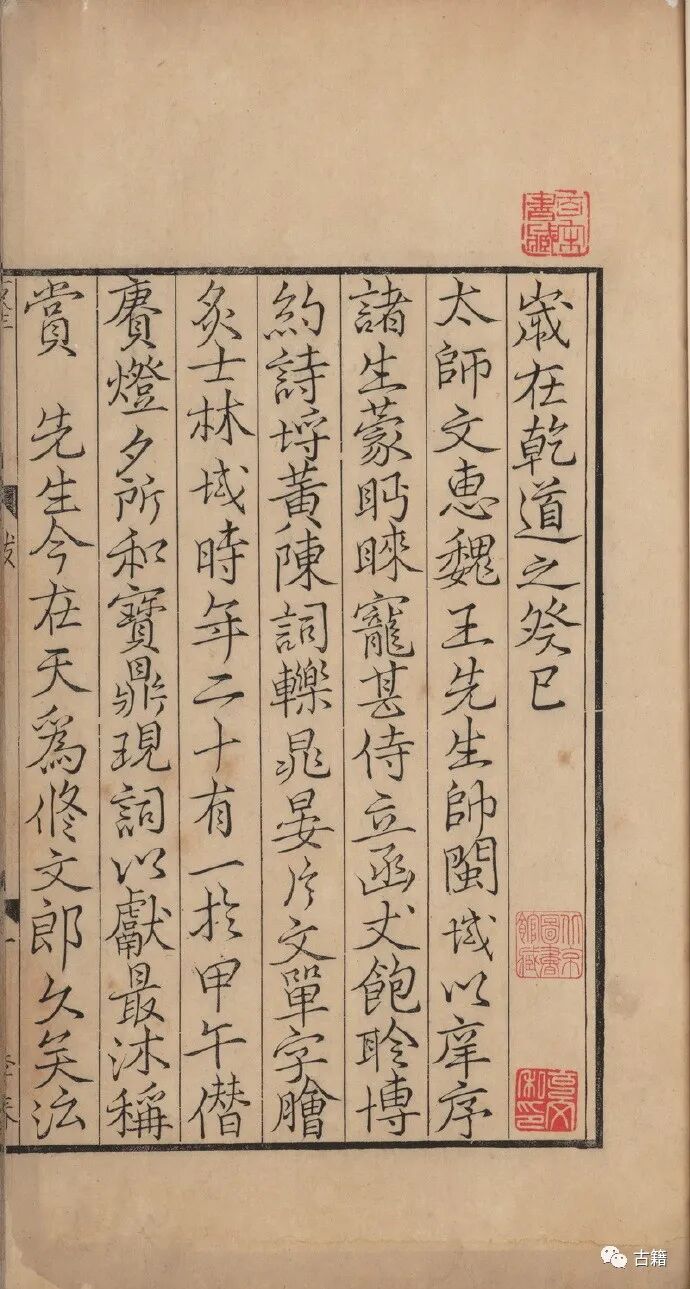 歲在乾道之癸巳
太師文惠魏王先生帥閩域以庠序
諸生蒙眄睞寵甚侍立函丈飽聆博
約詩埒黃陳詞轢晁晏片文單字膾
炙士林域時年二十有一於甲午僣
賡燈夕所和寶鼎現詞以獻最沐稱
賞　先生今在天爲修文郎久矣泫
跋
一
古籍